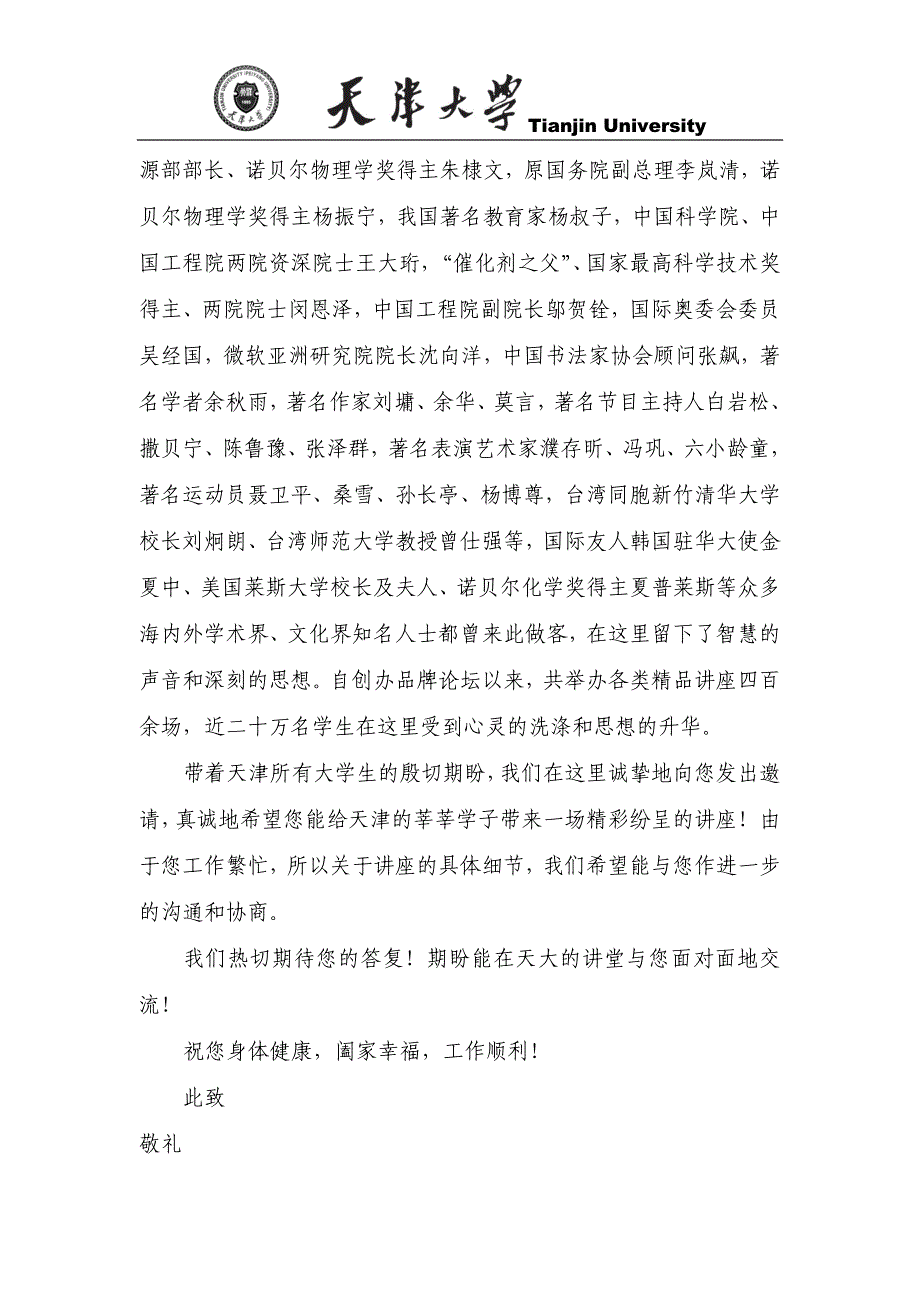 TIANJIN UNIVERSITY (PEIYANG UNIVERSITY)
1895
天津大学
天津大学 Tianjin University
源部部长、诺贝尔物理学奖得主朱棣文，原国务院副总理李岚清，诺
贝尔物理学奖得主杨振宁，我国著名教育家杨叔子，中国科学院、中
国工程院两院资深院士王大珩，“催化剂之父”、国家最高科学技术奖
得主、两院院士闵恩泽，中国工程院副院长邬贺铨，国际奥委会委员
吴经国，微软亚洲研究院院长沈向洋，中国书法家协会顾问张飙，著
名学者余秋雨，著名作家刘墉、余华、莫言，著名节目主持人白岩松、
撒贝宁、陈鲁豫、张泽群，著名表演艺术家濮存昕、冯巩、六小龄童，
著名运动员聂卫平、桑雪、孙长亭、杨博尊，台湾同胞新竹清华大学
校长刘炯朗、台湾师范大学教授曾仕强等，国际友人韩国驻华大使金
夏中、美国莱斯大学校长及夫人、诺贝尔化学奖得主夏普莱斯等众多
海内外学术界、文化界知名人士都曾来此做客，在这里留下了智慧的
声音和深刻的思想。自创办品牌论坛以来，共举办各类精品讲座四百
余场，近二十万名学生在这里受到心灵的洗涤和思想的升华。
带着天津所有大学生的殷切期盼，我们在这里诚挚地向您发出邀
请，真诚地希望您能给天津的莘莘学子带来一场精彩纷呈的讲座！由
于您工作繁忙，所以关于讲座的具体细节，我们希望能与您作进一步
的沟通和协商。
我们热切期待您的答复！期盼能在天大的讲堂与您面对面地交
流！
祝您身体健康，阖家幸福，工作顺利！
此致
敬礼